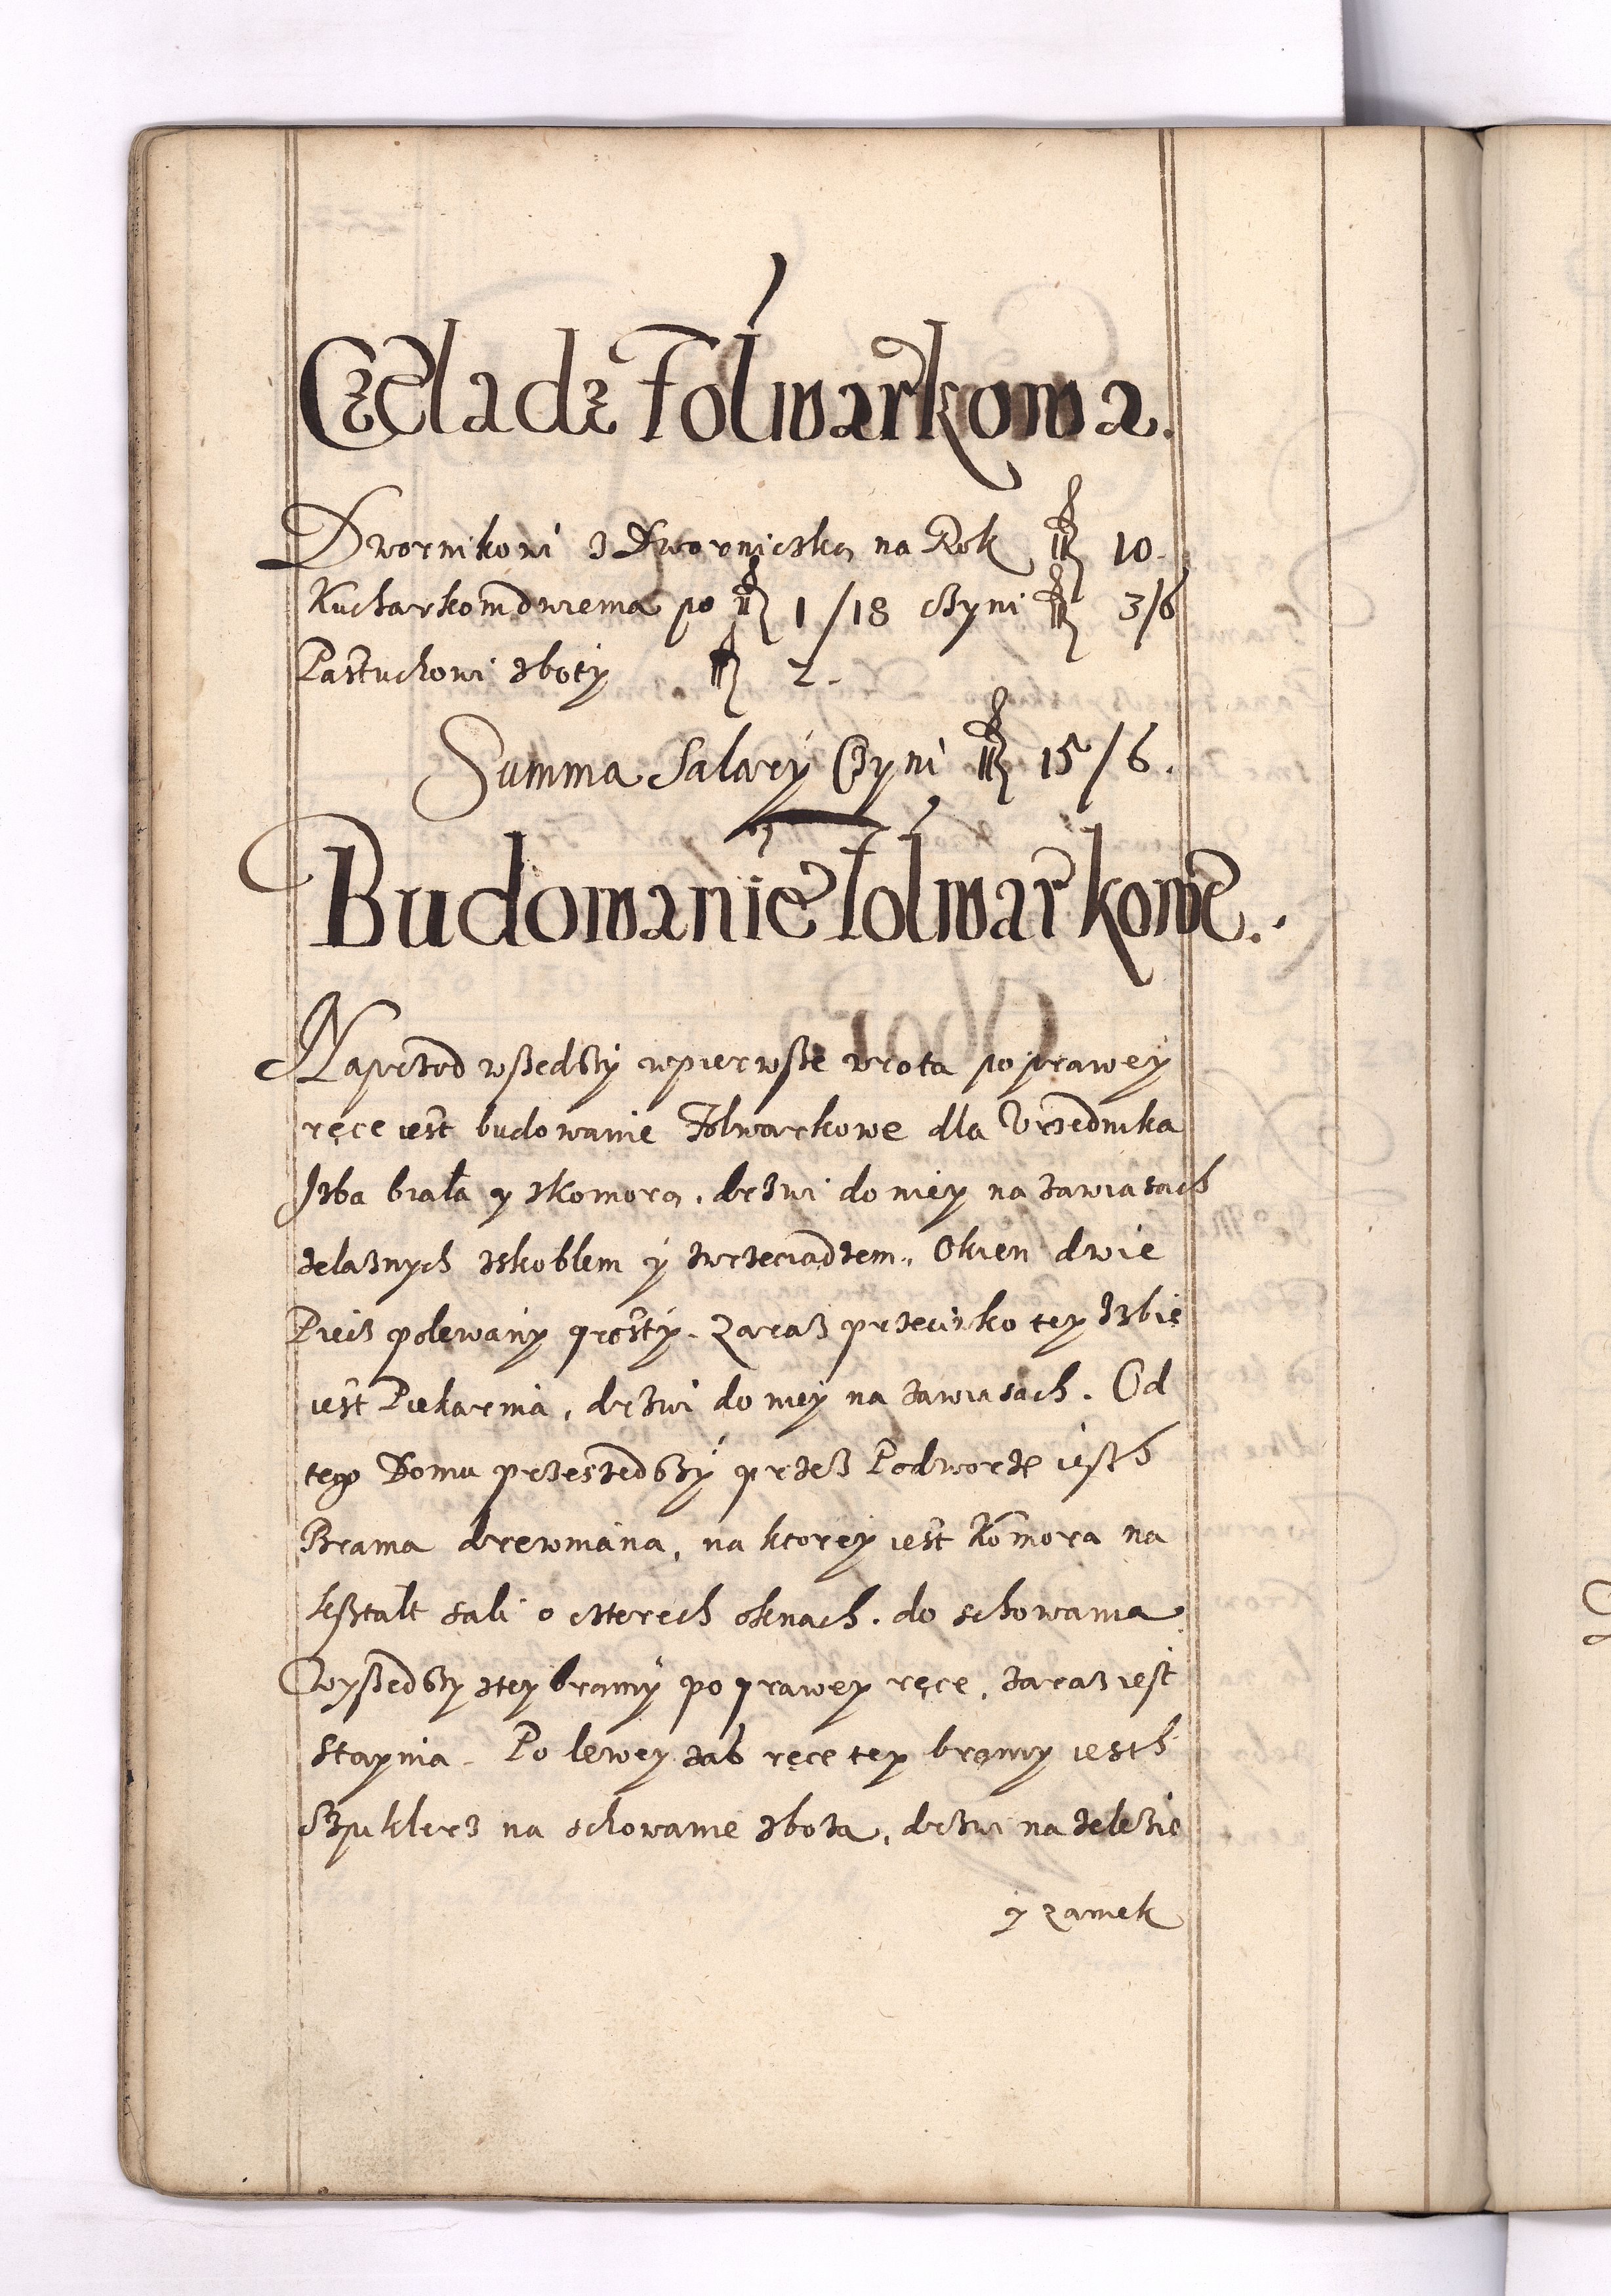 Czeladz Folwarkowa.
Dwornikowi z Dworniczką na Rok fl 10.
Kucharkom dwiema po fl 1/18 czyni fl 3/6
Pastuchowi zboty fl 2.
Summa Salary Czyni fl 15/6.
Budowanie Folwarkowe.
Naprzod wszedszy w pierwsze wrota po prawey
ręce iest budowanie Folwarkowe dla Vrzednika
Izba biała y zkomorą, drzwi do niey na zawiasach
zelaznych zskoblem y wrzeciadzem. Okien dwie
Piecz polewany prosty. Zaraz przeciwko tey Izbie
iest Piekarnia, drzwi do niey na zawiasach. Od
tego Domu przeszedszy przez Podworze iesth
Brama drewniana, na ktorey iest Komora na
kształt sali o czterech oknach. do schowania
Wyszedszy ztey bramy po prawey ręce, zaraz iest
Staynia. Po lewey zas ręce tey bramy iesth
Szpiklerz na schowanie zboza, drzwi na zelezie
y zamek